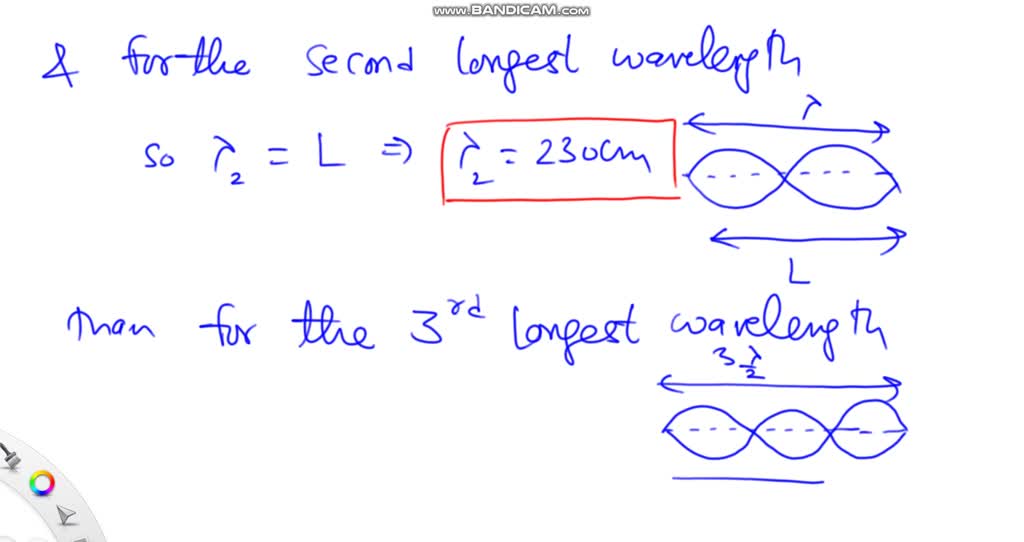 www.BANDICAM.com
& for the second longest wavelength
so λ₂ = L ⇒ λ₂ = 230cm
λ
L
than for the 3rd longest wavelength
3 λ/2